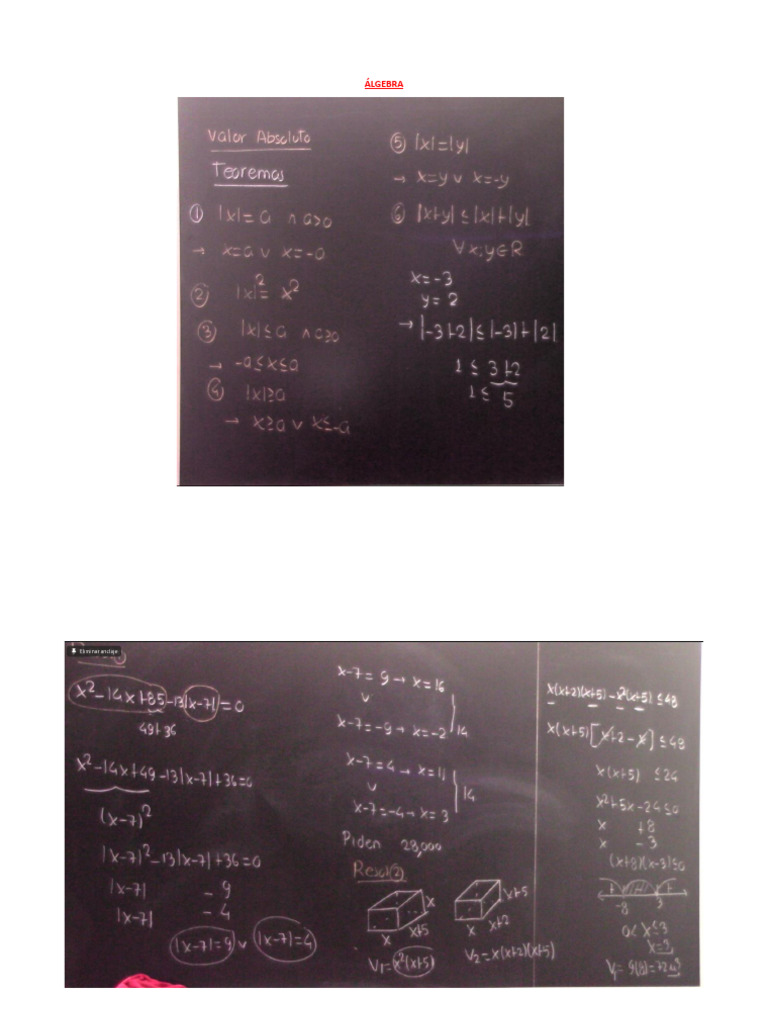 ÁLGEBRA
Valor Absoluto
Teoremas
① |x|=a ∧ a>0
→ x=a ∨ x=-a
② |x|²= x²
③ |x|≤a ∧ a≥0
→ -a≤x≤a
④ |x|≥a
→ x≥a ∨ x≤-a
⑤ |x|=|y|
→ x=y ∨ x=-y
⑥ |x+y|≤|x|+|y|
∀x;y∈R
x=-3
y=2
→ |-3+2|≤|-3|+|2|
1 ≤ 3+2
1 ≤ 5
Eliminar anclaje
x²-14x+85-13|x-7|=0
49+36
x²-14x+49-13|x-7|+36=0
(x-7)²
|x-7|²-13|x-7|+36=0
|x-7| - 9
|x-7| - 4
|x-7|=9 ∨ |x-7|=4
x-7=9→x=16
∨
x-7=-9→x=-2
14
x-7=4→x=11
∨
x-7=-4→x=3
14
Piden 28,000
Resol(2)
x
x x+5
V1=x²(x+5)
x+5
x x+2
V2=x(x+2)(x+5)
x(x+2)(x+5)-x²(x+5)≤48
x(x+5)[x+2-x]≤48
x(x+5) ≤24
x²+5x-24≤0
x +8
x -3
(x+8)(x-3)≤0
+ +
-8 3
0<x≤3
x=3
V1=9(8)=72u³